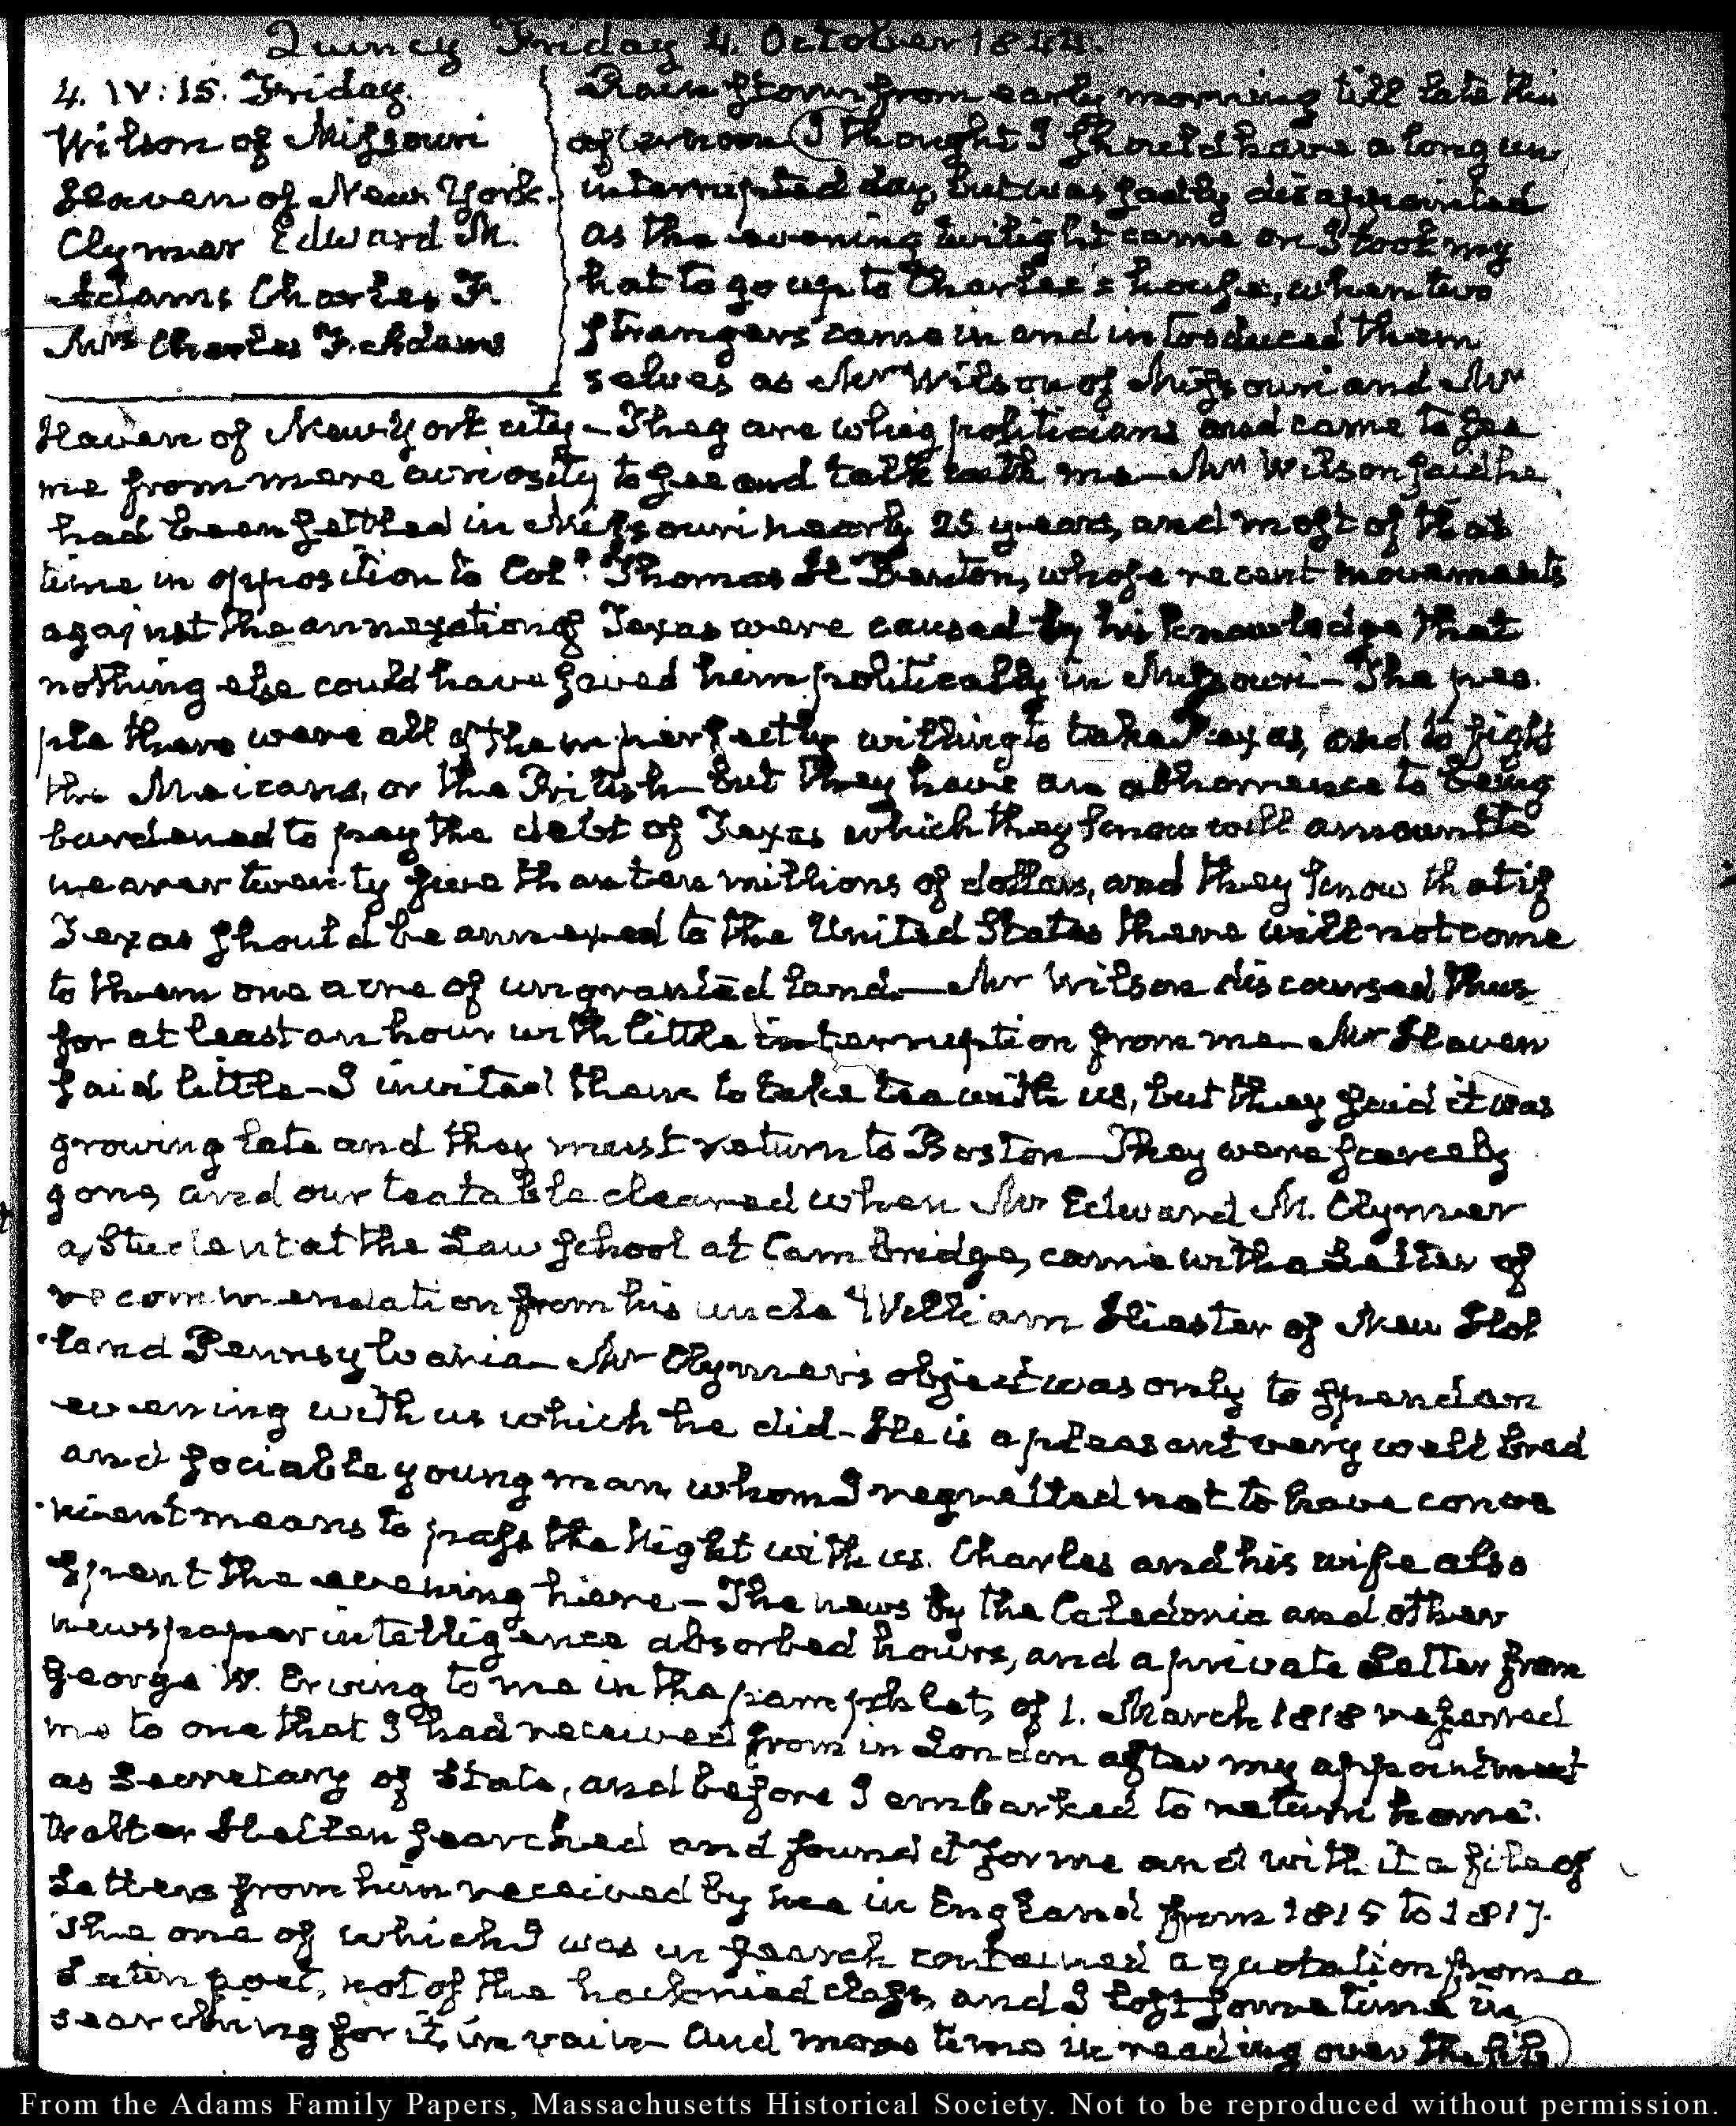 Quincy Friday 4. October 1844.
4. IV:15. Friday.
Wilson of Missouri
Haven of New York.
Clymer Edward M.
Adams Charles F.
Mrs Charles F. Adams
Rain storm from early morning till late this
afternoon I thought I should have a long un
interrupted day, but was sadly disappointed
as the evening twilight came on I took my
hat to go up to Charles's house, when two
strangers came in and introduced them
selves as Mr Wilson of Missouri and Mr
Haven of New York city – They are whig politicians and came to see
me from mere curiosity to see and talk with me – Mr Wilson said he
had been settled in Missouri nearly 25 years, and most of that
time in opposition to Coll. Thomas H Benton, whose recent movements
against the annexation of Texas were caused by his knowledge that
nothing else could have saved him politically in Missouri – The peo-
ple there were all of them perfectly willing to take Texas, and to fight
the Meicans, or the British – but they have an abhorrence to being
burdened to pay the debt of Texas which they know will amount to
nearer twenty five than ten millions of dollars, and they know that if
Texas should be annexed to the United States there will not come
to them one acre of ungranted land. – Mr Wilson discoursed thus
for at least an hour with little interruption from me – Mr Haven
said little – I invited them to take tea with us, but they said it was
growing late and they must return to Boston – They were scarcely
gone, and our tea table cleared when Mr Edward M. Clymer
a, Student at the Law School at Cambridge, came with a Letter of
recommendation from his uncle William Hiester of New Hol
-land Pennsylvania – Mr Clymer's object was only to spend an
evening with us which he did – He is a pleasant very well bred
and sociable young man, whom I regretted not to have conve
-nient means to pass the Night with us. Charles and his wife also
spent the evening here – The news by the Caledonia and other
newspaper intelligence absorbed hours, and a private Letter from
George W. Erving to me in the pamphlet, of 1. March 1818 referred
me to one that I had received from in London after my appointment
as Secretary of State, and before I embarked to return home.
Walter Hellen searched and found it for me and with it a file of
Letters from him received by me in England from 1815 to 1817.
The one of which I was in search contained a quotation from a
Latin poet, not of the hacknied class, and I lost some time in
searching for it, in vain – And more time in reading over the file